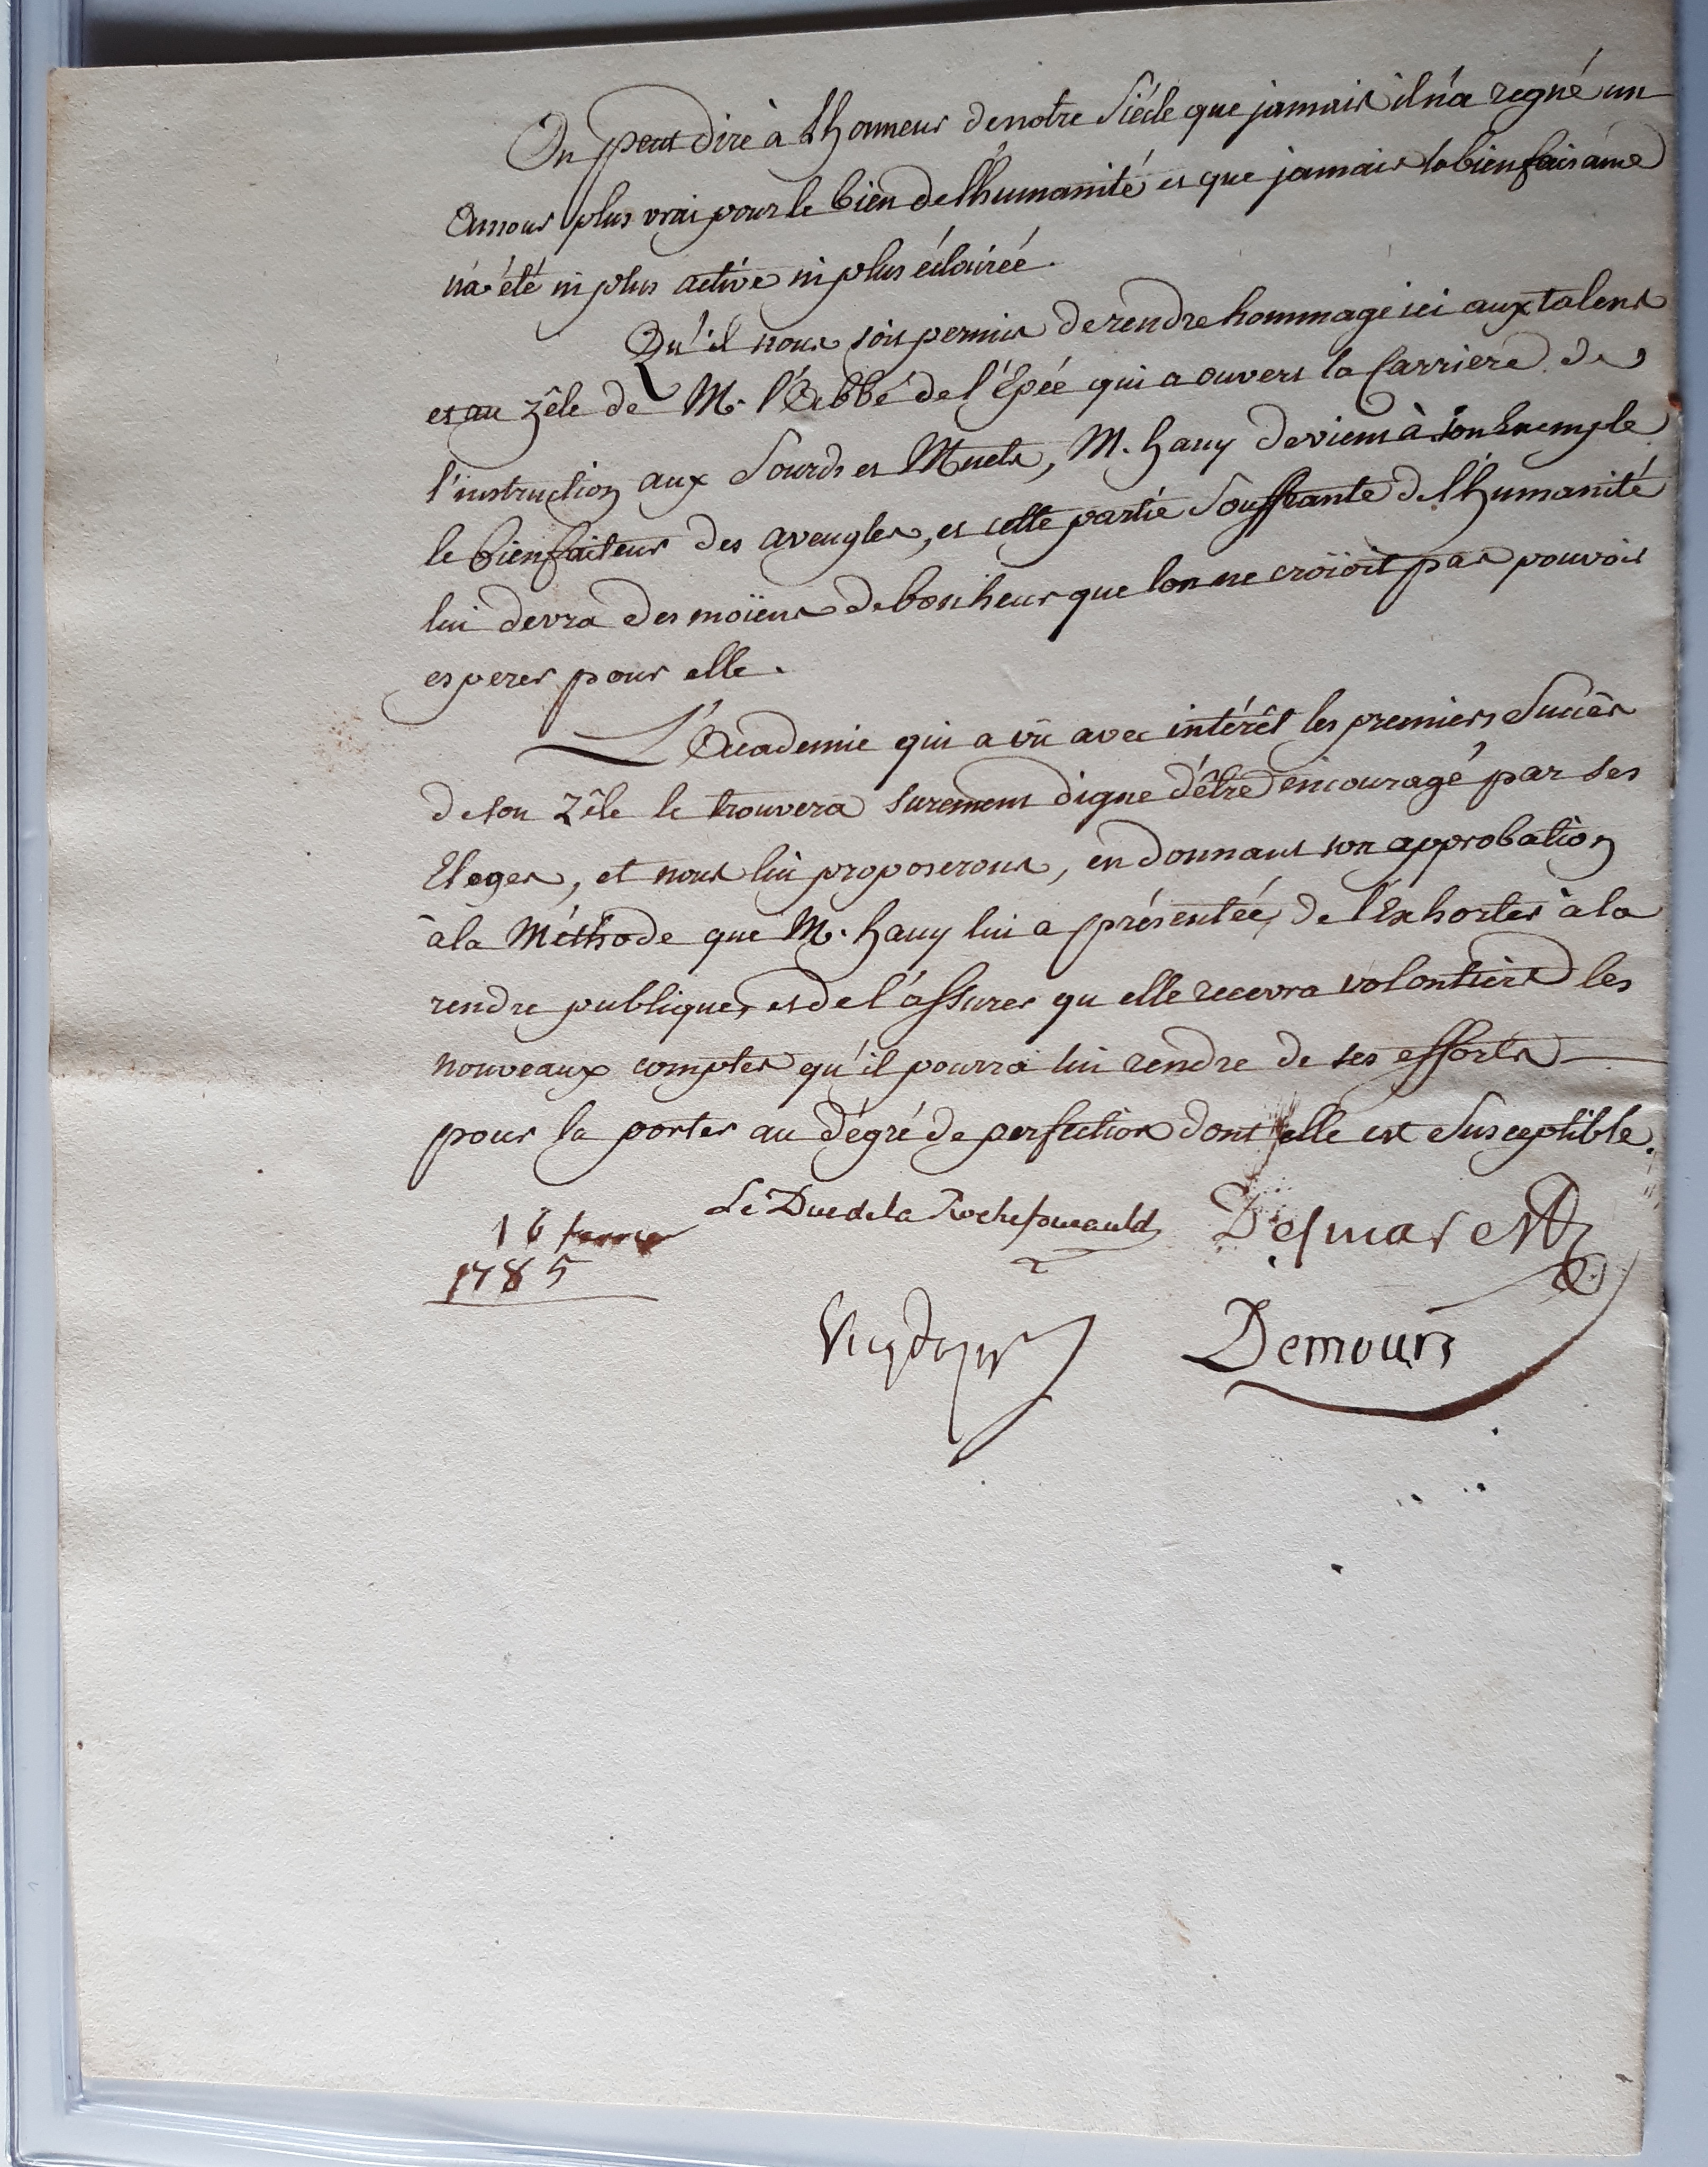 On peut dire à Lhonneur denotre Siécle que jamais il n'a regné un
Amour plus vrai pour le bien de lhumanité et que jamais la bienfaisance
n'a été ni plus active ni plus éclairée.
Qu'il nous soit permis de rendre hommage ici aux talens
et au zêle de M. l'Abbé de l'Epée qui a ouvert la Carriere de
l'instruction aux Sourds et Muets, M. hauy devient à son Exemple
le bienfaiteur des aveugles, et cette partie Souffrante de l'humanité
lui devra des moïens de bonheur que lon ne croïoit pas pouvoir
esperer pour elle.
L'Academie qui a vû avec intérêt les premiers Succès
de son zêle le trouvera surement digne d'être encouragé par ses
Eloges, et nous lui proposerons, en donnant son approbation
à la Méthode que M. hauy lui a présentée, de l'Exhorter à la
rendre publique, et de l'assurer qu'elle recevra volontiers les
nouveaux comptes qu'il pourra lui rendre de ses efforts
pour la porter au dégré de perfection dont elle est Susceptible.
16 fevrier
1785
Le Duc de la Rochefoucauld Desmarest
Vicq d'azyr Demours